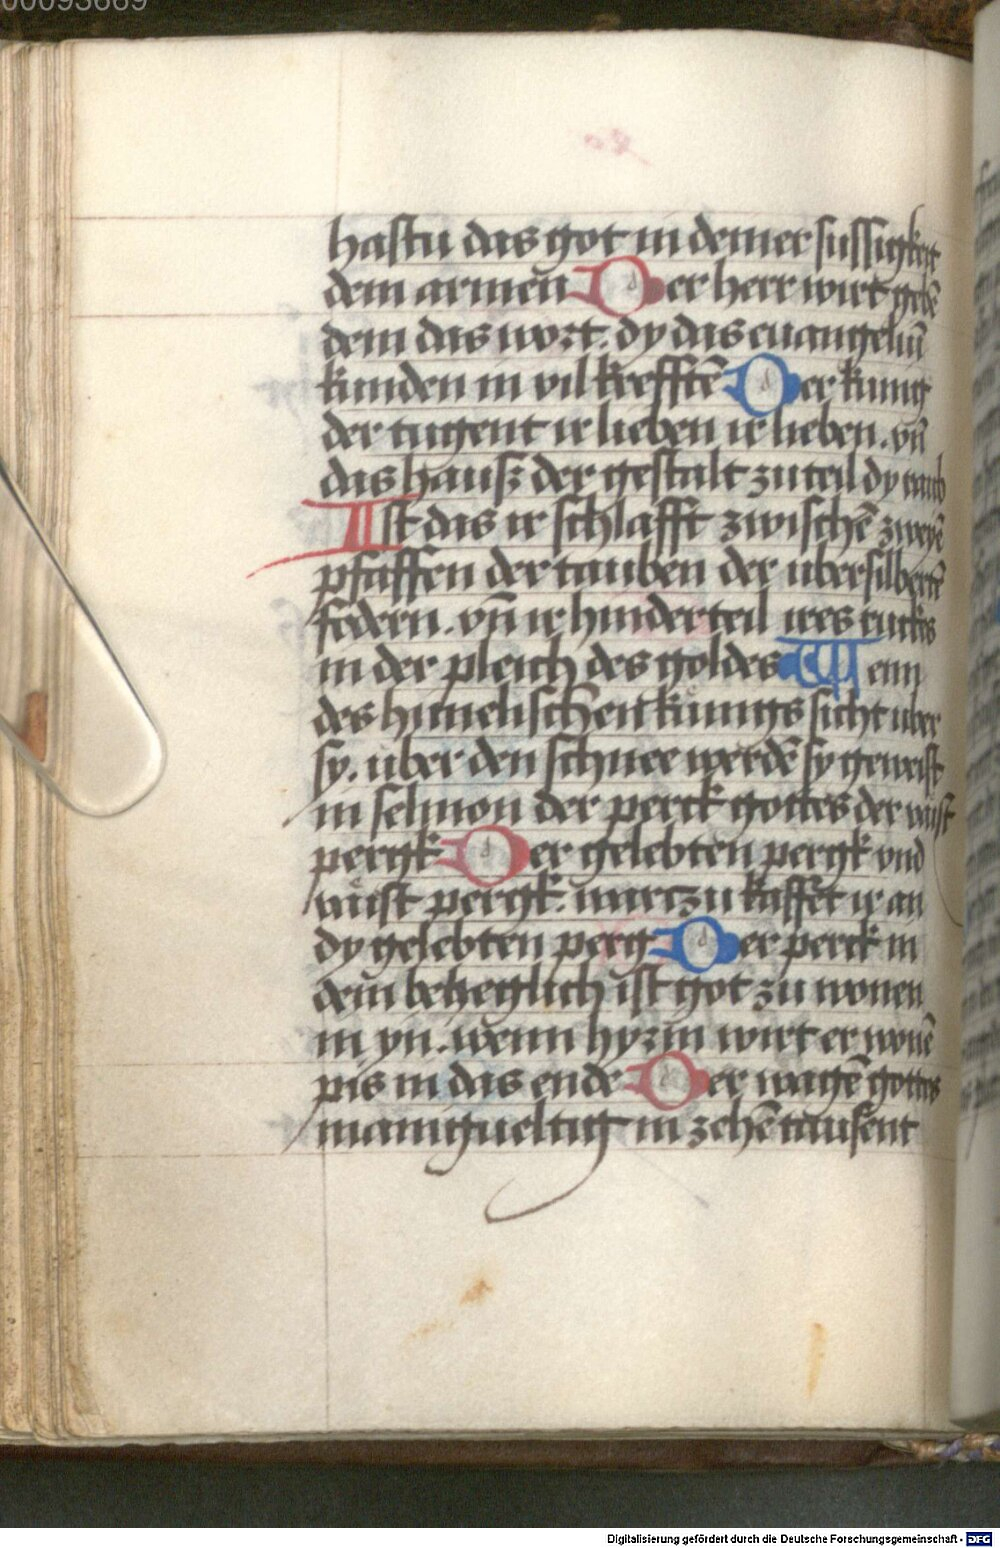 00093669
hastu das got in deiner sussigkeit
dem armen Der herr wirt gebē
dem das wort. dy das euangeliū
kunden in vil krefftē Der kunig
der tugent ir lieben ir lieben. vn̄
das hausz der gestalt zu teil dy raub
Ist das ir schlafft zwischē zweyē
pfaffen der tauben der ubersilbertē
federn. vn̄ ir hinderteil ires ruckes
in der pleich des goldes Wenn
des himelischen kunigs sicht uber
sy. uber den schnee werdē sy geweist
in selmon der perck gottes der vaist
pergk Der gelebten pergk vnd
vaist pergk. warzu kaffet ir an
dy gelebten perg Der perck in
dem beheglich ist got zu wonen
in yn. wenn hyrin wirt er wonē
pis in das ende Der wagē gottes
manigueltig in zehē tausent
Digitalisierung gefördert durch die Deutsche Forschungsgemeinschaft - DFG